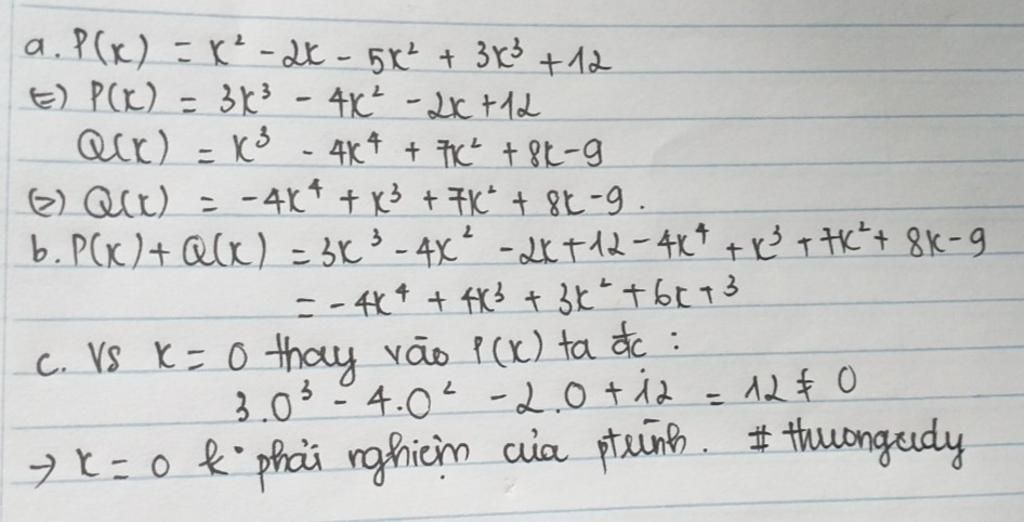 a. P(x) = x² - 2x - 5x² + 3x³ + 12
(=) P(x) = 3x³ - 4x² - 2x + 12
Q(x) = x³ - 4x⁴ + 7x² + 8x - 9
(=) Q(x) = -4x⁴ + x³ + 7x² + 8x - 9.
b. P(x) + Q(x) = 3x³ - 4x² - 2x + 12 - 4x⁴ + x³ + 7x² + 8x - 9
= -4x⁴ + 4x³ + 3x² + 6x + 3
c. Vs x = 0 thay vào P(x) ta đc :
3.0³ - 4.0² - 2.0 + 12 = 12 ≠ 0
→ x = 0 k° phải nghiệm của ptrình. #